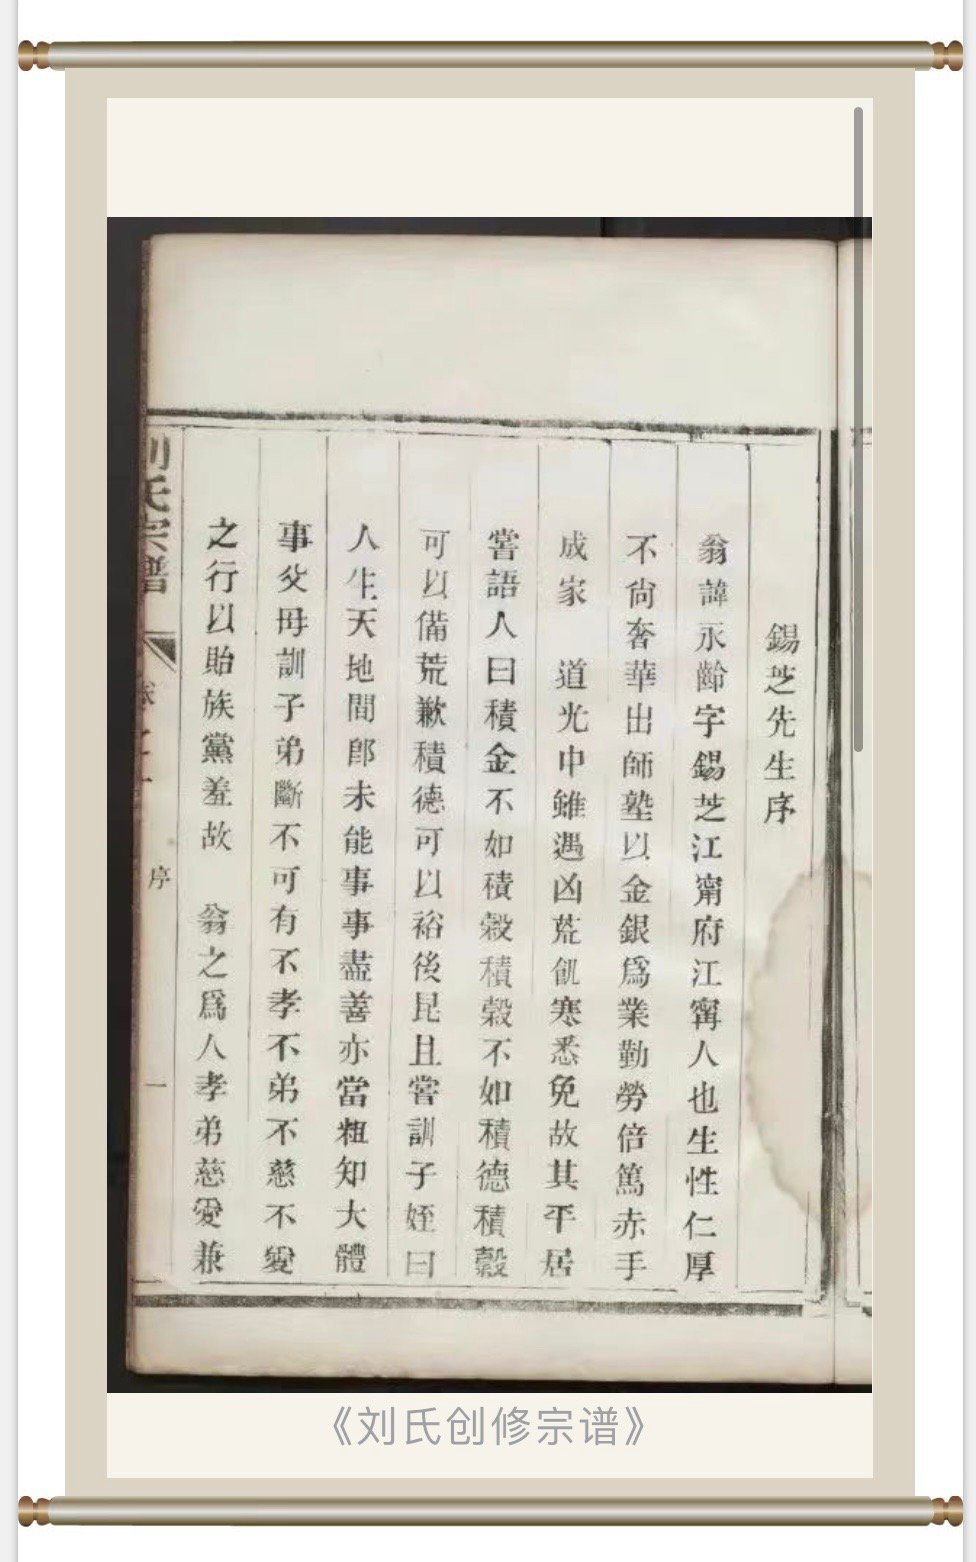 錫芝先生序
翁諱永齡字錫芝江甯府江甯人也生性仁厚
不尙奢華出師塾以金銀爲業勤勞倍篤赤手
成家　道光中雖遇凶荒飢寒悉免故其平居
嘗語人曰積金不如積穀積穀不如積德積穀
可以備荒歉積德可以裕後昆且嘗訓子姪曰
人生天地間卽未能事事盡善亦當粗知大體
事父母訓子弟斷不可有不孝不弟不慈不愛
之行以貽族黨羞故　翁之爲人孝弟慈愛兼
劉氏宗譜
序
一
《刘氏创修宗谱》